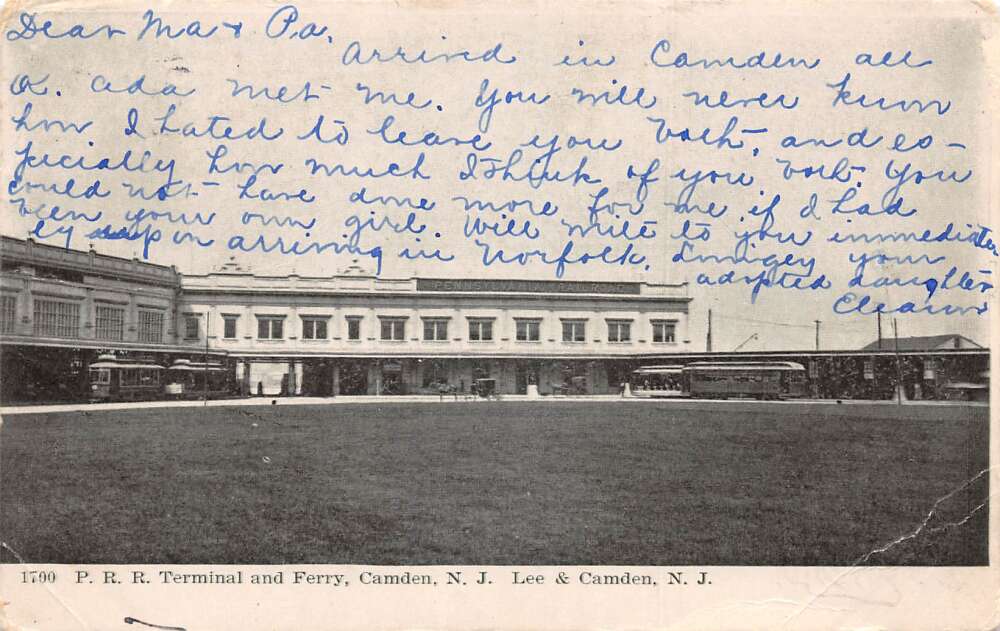 Dear Ma & Pa.
Arrived in Camden all
O.K. Ada met me. You will never know
how I hated to leave you both, and es-
pecially how much I think of you both. You
could not have done more for me if I had
been your own girl. Will write to you immediate
ly upon arriving in Norfolk. your
adopted daughter
PENNSYLVANIA RAILROAD
1700 P. R. R. Terminal and Ferry, Camden, N. J. Lee & Camden, N. J.